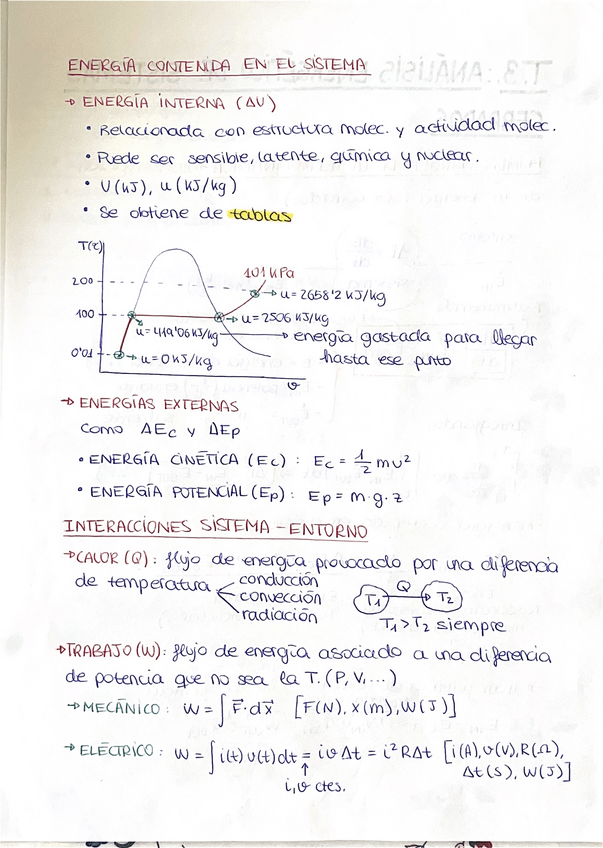 ENERGÍA CONTENIDA EN EL SISTEMA
→ ENERGÍA INTERNA (ΔU)
• Relacionada con estructura molec. y actividad molec.
• Puede ser sensible, latente, química y nuclear.
• U(kJ), u(kJ/kg)
• Se obtiene de tablas
T(ºC)
101 kPa
200
→ u = 2658'2 kJ/kg
100
→ u = 2506 kJ/kg
u = 419'06 kJ/kg → energía gastada para llegar
hasta ese punto
0'01
→ u = 0 kJ/kg
v
→ ENERGÍAS EXTERNAS
Como ΔEc y ΔEp
• ENERGÍA CINÉTICA (Ec) : Ec = 1/2 mv²
• ENERGÍA POTENCIAL (Ep) : Ep = m·g·z
INTERACCIONES SISTEMA - ENTORNO
→ CALOR (Q) : flujo de energía provocado por una diferencia
de temperatura
conducción
convección
radiación
T₁ Q T₂
T₁ > T₂ siempre
→ TRABAJO (W) : flujo de energía asociado a una diferencia
de potencia que no sea la T. (P, V, ...)
→ MECÁNICO : W = ∫ F⃗·dx⃗ [F(N), x(m), W(J)]
→ ELÉCTRICO : W = ∫ i(t) v(t) dt = i v Δt = i² R Δt [i(A), v(V), R(Ω),
Δt(s), W(J)]
↑
i, v ctes.